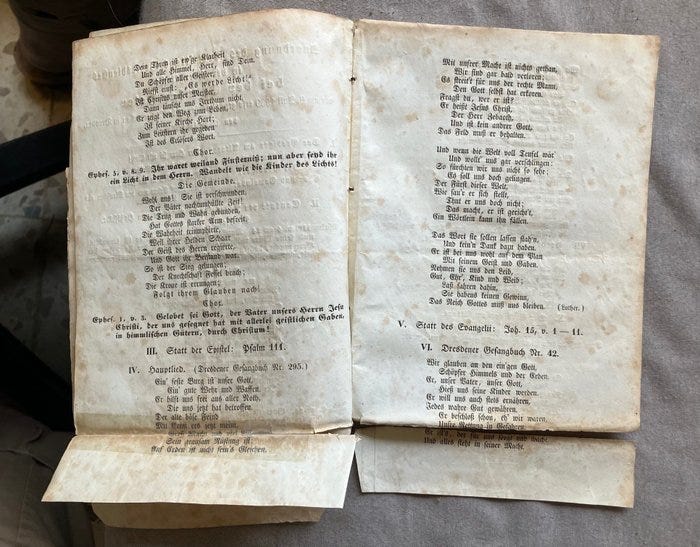 Dein Thron ist ew'ge Klarheit
Und alle Himmel, Herr, sind Dein.
Du Schöpfer aller Geister,
Riefst einst: „Es werde Licht!“
Ist Christus unser Meister,
Dann täuscht uns Irrthum nicht.
Er zeigt den Weg zum Leben,
Ist seiner Kirche Hort;
Zum Leitstern ihr gegeben
Ist des Erlösers Wort.
Chor.
Ephes. 5. v. 8. 9. Ihr waret weiland Finsterniß; nun aber seyd ihr
ein Licht in dem Herrn. Wandelt wie die Kinder des Lichts!
Die Gemeinde.
Wohl uns! Sie ist verschwunden,
Der Väter nachtumhüllte Zeit!
Die Trug und Wahn gebunden,
Hat Gottes starker Arm befreit.
Die Wahrheit triumphirte,
Weil ihrer Helden Schaar
Der Geist des Herrn regierte,
Und Gott ihr Beistand war.
So ist der Sieg gelungen;
Der Knechtschaft Fessel brach;
Die Krone ist errungen;
Folgt ihrem Glauben nach!
Chor.
Ephes. 1. v. 3. Gelobet sei Gott, der Vater unsers Herrn Jesu
Christi, der uns gesegnet hat mit allerlei geistlichen Gaben,
in himmlischen Gütern, durch Christum!
III. Statt der Epistel: Psalm 111.
IV. Hauptlied. (Dresdener Gesangbuch Nr. 295.)
Ein' feste Burg ist unser Gott,
Ein' gute Wehr und Waffen.
Er hilft uns frei aus aller Noth,
Die uns jetzt hat betroffen.
Der alte böse Feind
Mit Ernst ers jetzt meint,
Sein grausam Rüstung ist;
Auf Erden ist nicht sein's Gleichen.
Mit unsrer Macht ist nichts gethan,
Wir sind gar bald verloren;
Es streit't für uns der rechte Mann,
Den Gott selbst hat erkoren.
Fragst du, wer er ist?
Er heißt Jesus Christ,
Der Herr Zebaoth,
Und ist kein andrer Gott,
Das Feld muß er behalten.
Und wenn die Welt voll Teufel wär'
Und wollt' uns gar verschlingen:
So fürchten wir uns nicht so sehr;
Es soll uns doch gelingen.
Der Fürst dieser Welt,
Wie sau'r er sich stellt,
Thut er uns doch nicht;
Das macht, er ist gericht't,
Ein Wörtlein kann ihn fällen.
Das Wort sie sollen lassen stah'n,
Und kein'n Dank dazu haben.
Er ist bei uns wohl auf dem Plan
Mit seinem Geist und Gaben.
Nehmen sie uns den Leib,
Gut, Ehr', Kind und Weib;
Laß fahren dahin,
Sie habens keinen Gewinn,
Das Reich Gottes muß uns bleiben. (Luther.)
V. Statt des Evangelii: Joh. 15, v. 1—11.
VI. Dresdener Gesangbuch Nr. 42.
Wir glauben an den ein'gen Gott,
Schöpfer Himmels und der Erden.
Er, unser Vater, unser Gott,
Hieß uns seine Kinder werden.
Er will uns auch stets ernähren,
Jedes wahre Gut gewähren.
Er beschloß schon, eh' wir waren,
Unsre Rettung in Gefahren.
Er ist's, der für uns sorgt und wacht,
Und alles steht in seiner Macht.